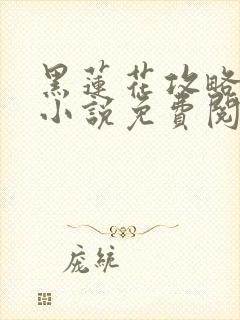 黑蓮花攻略
小說免費閱
庞統